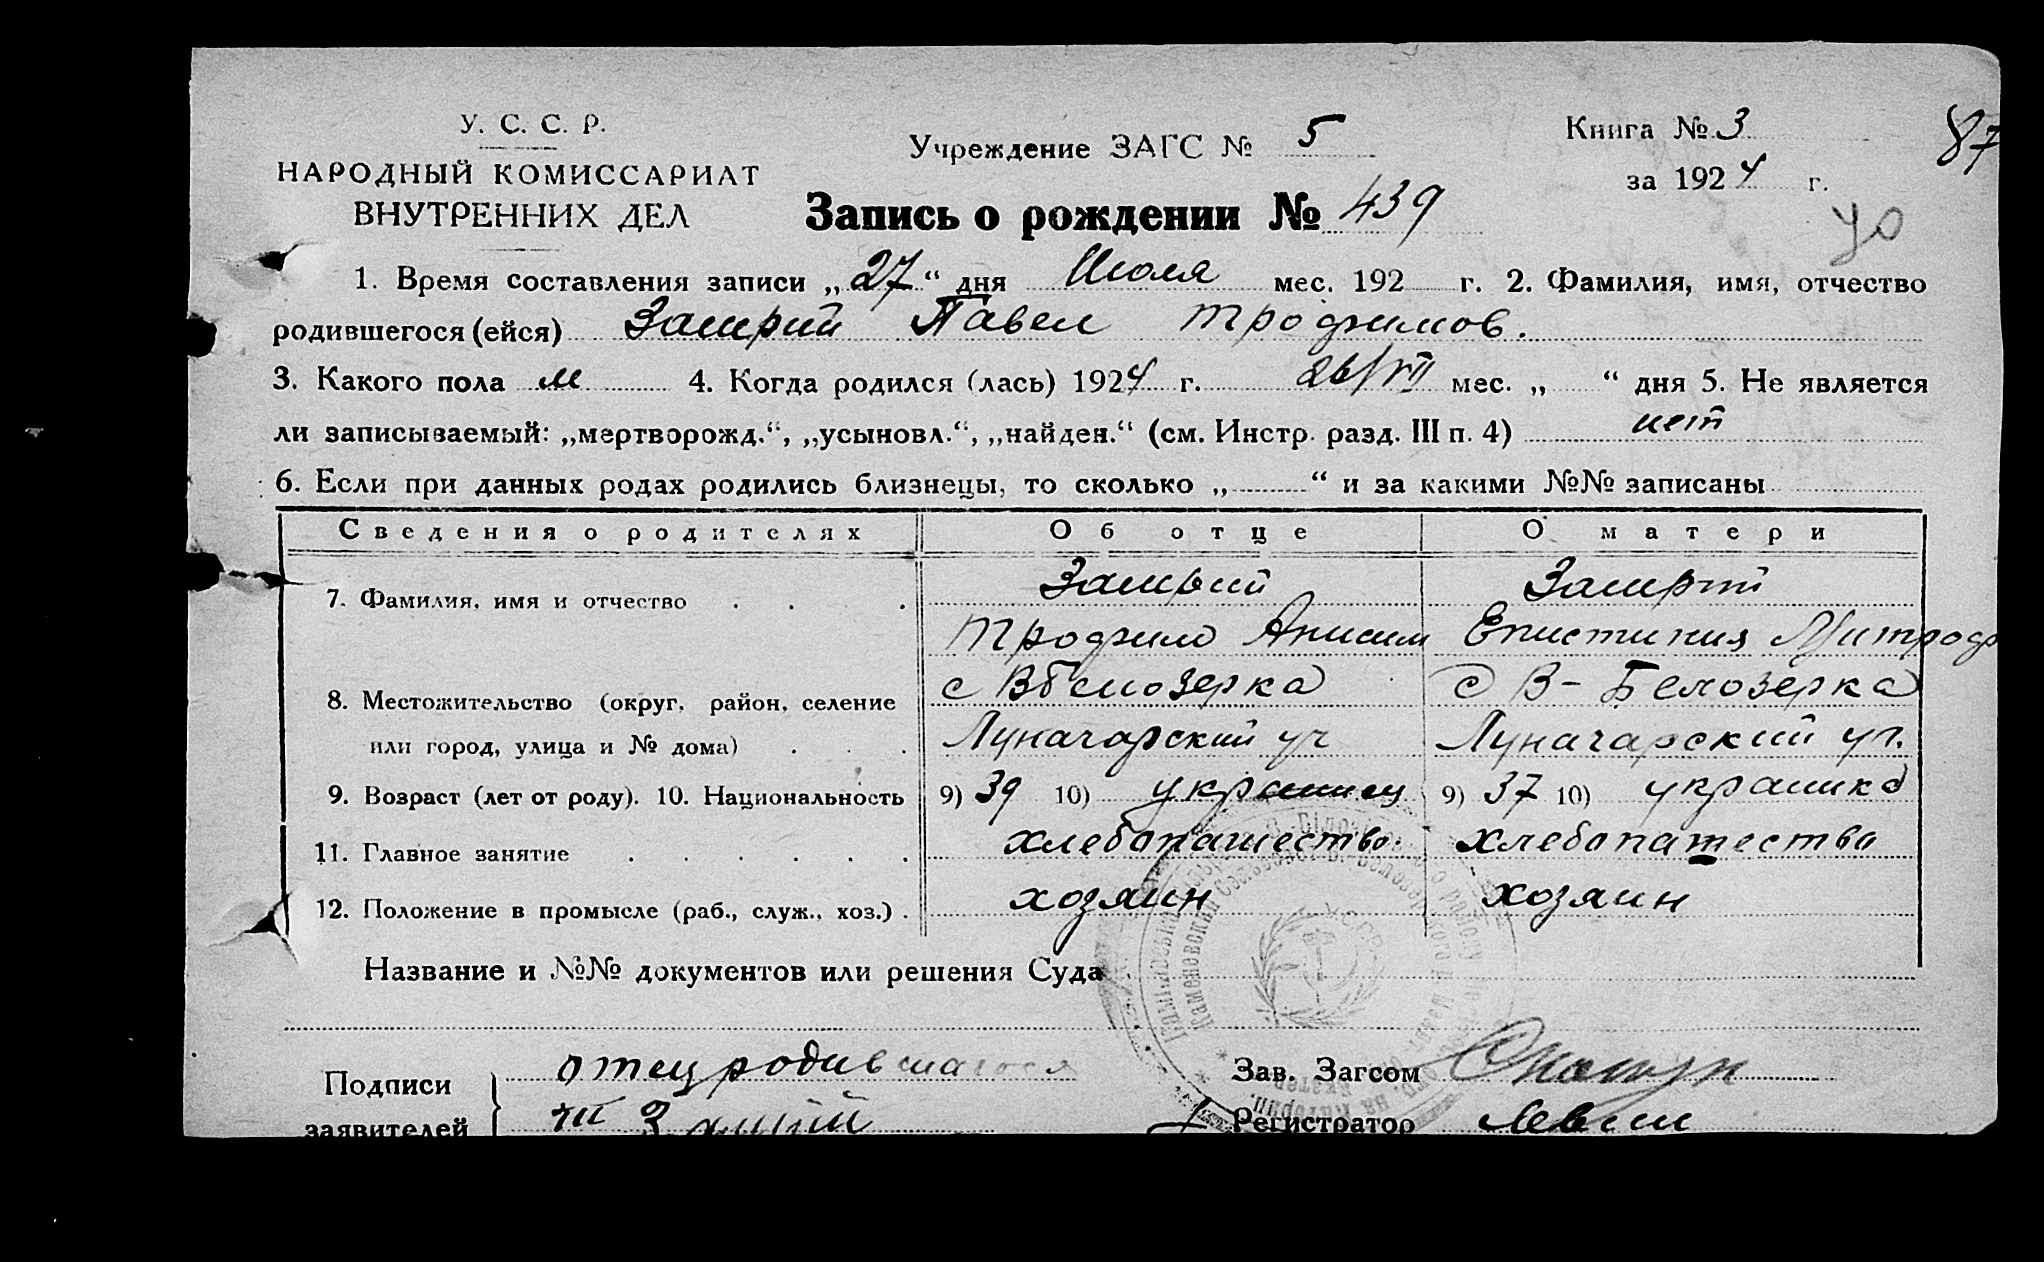 У. С. С. Р.
НАРОДНЫЙ КОМИССАРИАТ
ВНУТРЕННИХ ДЕЛ
Учреждение ЗАГС № 5
Книга № 3
за 1924 г.
87
Запись о рождении № 439
1. Время составления записи „27“ дня Июля мес. 192 г. 2. Фамилия, имя, отчество
родившегося (ейся) Замрий Павел Трофимов.
3. Какого пола м 4. Когда родился (лась) 1924 г. 26/VII мес. „ “ дня 5. Не является
ли записываемый: „мертворожд.“, „усыновл.“, „найден.“ (см. Инстр. разд. III п. 4) нет
6. Если при данных родах родились близнецы, то сколько „ “ и за какими №№ записаны
Сведения о родителях Об отце О матери
7. Фамилия, имя и отчество Замрий Замрий
Трофим Анисим Епистиния Митроф
8. Местожительство (округ, район, селение с В Белозерка с В-Белозерка
или город, улица и № дома) Луначарский уч Луначарский уч.
9. Возраст (лет от роду). 10. Национальность 9) 39 10) украинец 9) 37 10) украинка
11. Главное занятие хлебопашество. хлебопашество
12. Положение в промысле (раб., служ., хоз.) хозяин хозяин
Название и №№ документов или решения Суда
Подписи отец родившагося Зав. Загсом
заявителей Замрий Регистратор